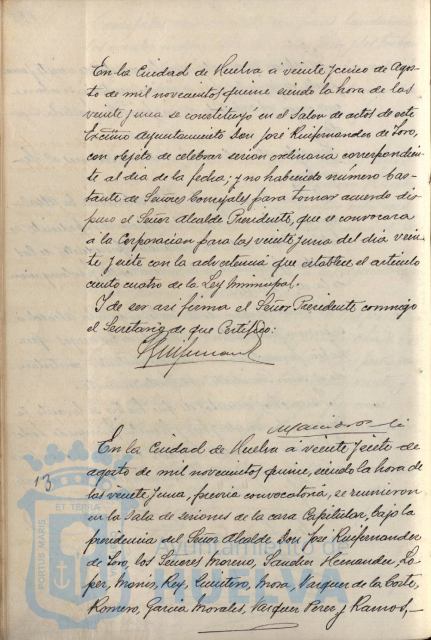 En la Ciudad de Huelva á veinte y cinco de Agos-
to de mil novecientos quince siendo la hora de las
veinte y una se constituyó en el Salon de actos de este
Excmo Ayuntamiento Don José Ruifernandez de Toro,
con objeto de celebrar sesion ordinaria correspondien-
te al dia de la fecha; y no habiendo número bas-
tante de Señores Concejales para tomar acuerdo dis-
puso el Señor Alcalde Presidente, que se convocara
á la Corporacion para las veinte y una del dia vein-
te y siete con la advertencia que establece el articulo
ciento cuatro de la Ley Municipal.
Y de ser asi firma el Señor Presidente conmigo
el Secretario de que Certifico:
En la Ciudad de Huelva á veinte y siete de
agosto de mil novecientos quince, siendo la hora de
las veinte y una, previa convocatoria, se reunieron
13
en la Sala de sesiones de la casa Capitular, bajo la
presidencia del Señor Alcalde Don José Ruifernandez
de Toro, los Señores Moreno, Sanchez Hernandez, Lo-
pez, Monís, Rey, Quintero, Mora, Vazquez de la Corte,
Romero, Garcia Morales, Vazquez Perez y Ramos,—
ET TERRAE
PORTUS MARIS
Ayuntamiento de
HUELVA